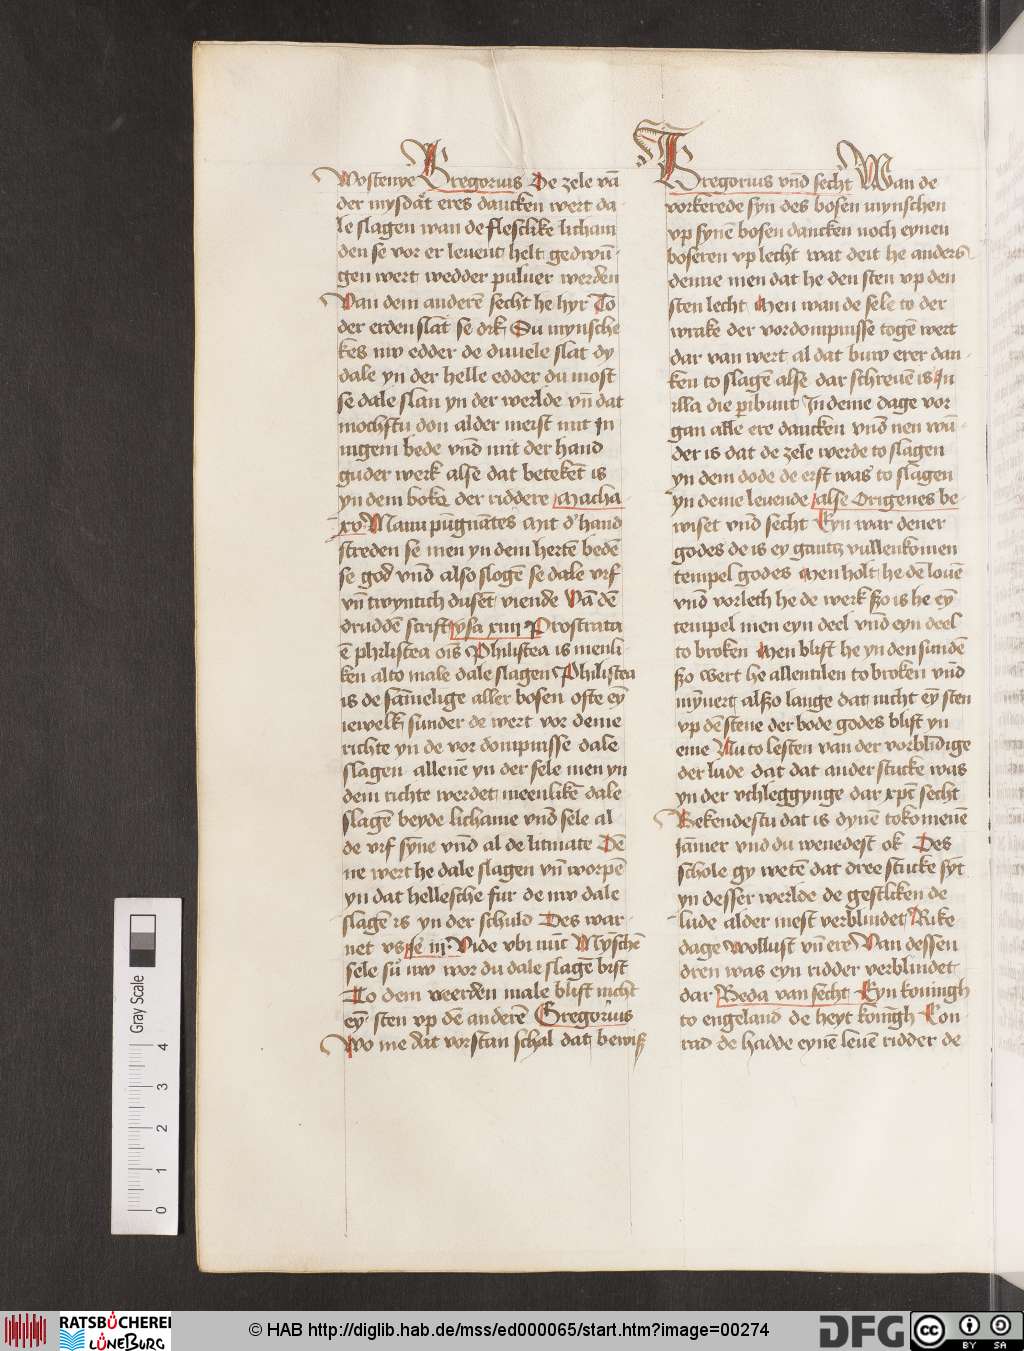 Wostenye Gregorius De zele vā
der mysdāt eres dancken wert da
le slagen wan de fleschke licham
den se vor er levent helt gedwū
gen wert wedder pulver werden
Van dem anderē secht he hyr To
der erden slāt se ok Du mynsche
kes nw edder de duvele slat dy
dale yn der helle edder du most
se dale slan yn der werlde vn̄ dat
mochstu don alder meist mit In
nigem bede vnd mit der hand
guder werk alse dat beteket is
yn dem boke der riddere Macha
xv Manu pugnātes Mit d' hand
streden se men yn dem hertē bedē
se god vnd also slogē se dale vrf
vn̄ twyntich duset viende Vā dē
druddē scrift ysa xiiii Prostrata
ē philistea ois Philistea is menli
ken alto male dale slagen Philistea
is de samelige aller bosen ofte eȳ
iewelk sunder de wert vor deme
richte yn de vor dompnisse dale
slagen allenē yn der sele men yn
dem richte werdet meenlikē dale
slagē beyde lichame vnd sele al
de vrf syne vnd al de litmate Dē
ne wert he dale slagen vn̄ worpē
yn dat hellesche fur de nw dale
slagē is yn der schuld Des war
net vs se iii Vide vbi nūc Mȳschē
sele su nw wor du dale slagē bist
To dem veerden male blift nicht
eȳ sten vp dē anderē Gregorius
Wo me dat vorstan schal dat bewiß
Gregorius vnd secht Wan de
vorkerede syn des bosen mynschen
vp synē bosen dancken noch eynen
boseren vp lecht wat deit he anders
denne men dat he den sten vp den
sten lecht Men wan de sele to der
wrake der vordompnisse togē wert
dar van wert al dat buw erer dan
ken to slagē alse dar schreuē is In
illa die peribunt In deme dage vor
gan alle ere dancken vnd nen wū
der is dat de zele werde to slagen
yn dem dode de erst was to slagen
yn deme leuende alse Origenes be
wiset vnd secht Eyn war dener
godes de is ey gantz vullenkomen
tempel godes Men holt he dē louē
vnd vorlech he de werk ßo is he eȳ
tempel men eyn deel vnd eyn deel
to broken Men blift he yn den sundē
ßo wert he allentilen to broken vnd
mȳnert alßo lange dat nicht eȳ sten
vp dē stene der bode godes blift yn
eme Nu to lesten van der vorblīdige
der lude dat dat ander stucke was
yn der vthleggynge dar xpc̄ secht
Bekendestu dat is dynē tokomenē
jāmer vnd du wenedest ok Des
schole gy wetē dat dree stucke sȳt
yn desser werlde de gestliken de
lude alder mest verblindet Rike
dage Wollust vn̄ ere Van dessen
dren was eyn ridder verblindet
dar Beda van secht Eyn koningh
to engeland de heyt konīgh Con
rad de hadde eynē leuē ridder de
Gray Scale
4
3
2
1
0
RATSBÜCHEREI
LÜNEBURG
© HAB http://diglib.hab.de/mss/ed000065/start.htm?image=00274
DFG
cc
BY SA